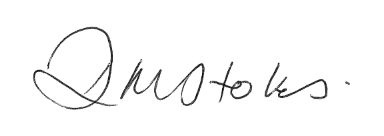 D M Stokes.